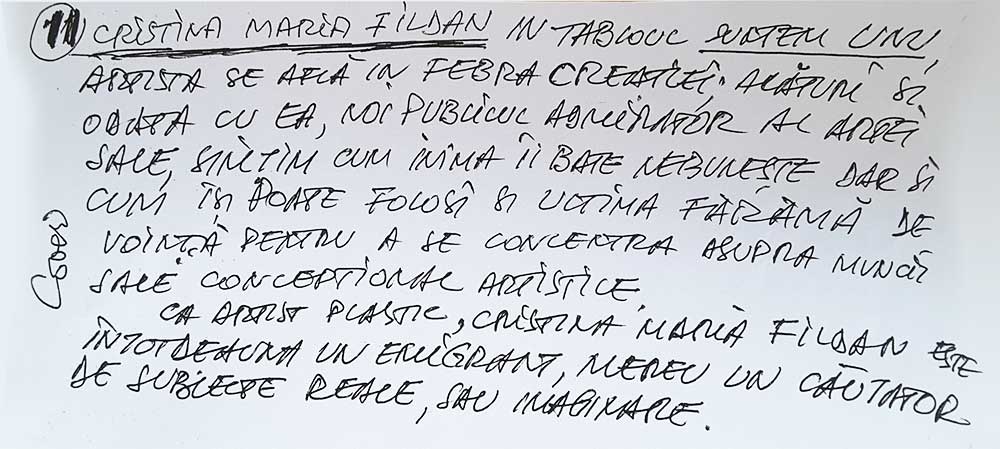 11 CRISTINA MARIA FILDAN IN TABLOUL SUNTEM UNU,
ARTISTA SE AFLĂ IN FEBRA CREATIEI. ALĂTURI SI
ODATA CU EA, NOI PUBLICUL ADMIRATOR AL ARTEI
SALE, SIMTIM CUM INIMA ÎI BATE NEBUNEȘTE DAR SI
CUM ÎȘI POATE FOLOSI SI ULTIMA FĂRÂMĂ DE
VOINȚĂ PENTRU A SE CONCENTRA ASUPRA MUNCII
SALE CONCEPTIONAL ARTISTICE.
CA ARTIST PLASTIC, CRISTINA MARIA FILDAN ESTE
ÎNTOTDEAUNA UN EMIGRANT, MEREU UN CĂUTATOR
DE SUBIECTE REALE, SAU IMAGINARE.